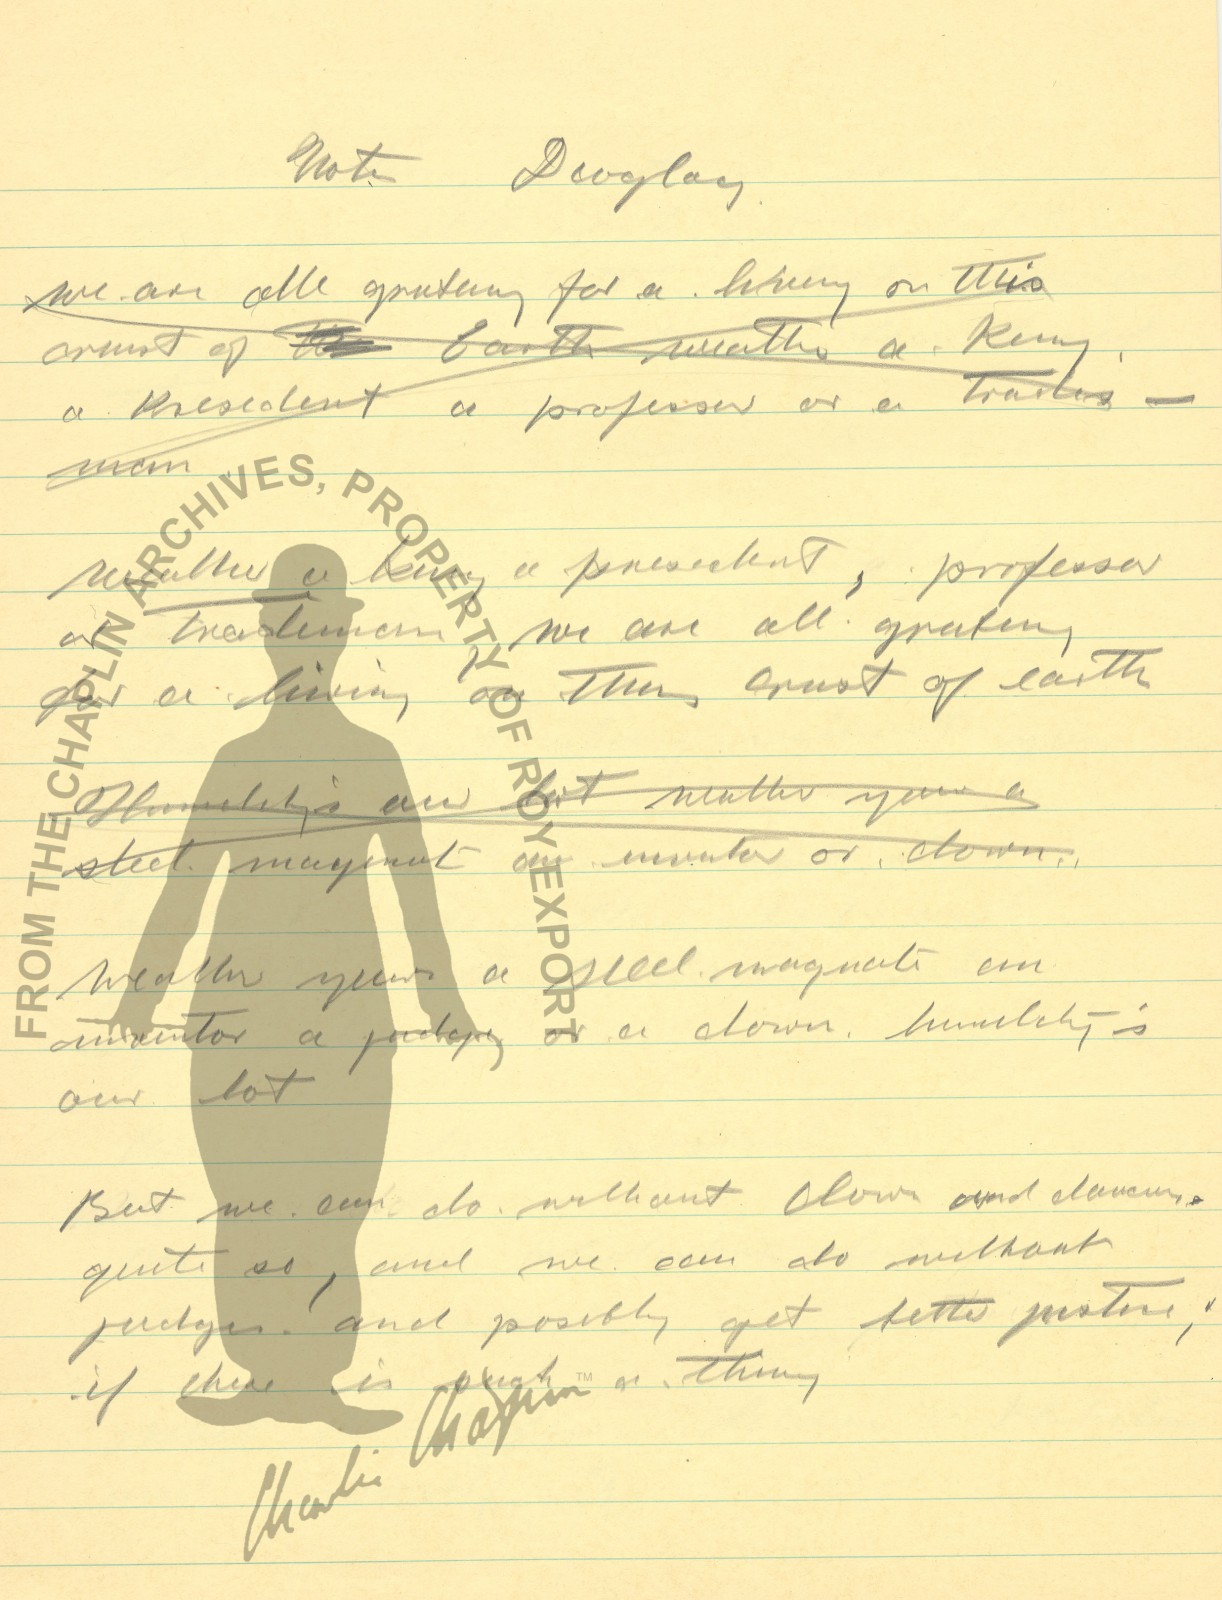 Note Douglas
we are all grubing for a living on this
crust of the Earth weather a King,
a President a professer or a trades -
man
weather a king a president, professer
or trademan, we are all grubing
for a living on this crust of earth
Humilety's our lot weather your a
steel magenat an inventor or clown.
Weather your a steel magnate an
inventor a judge, or a clown. humilety's
our lot
But we can do without clown and clowns.
quite so, and we can do without
judges. and posibly get better justice,
if there is such a thing
Charlie Chaplin™
FROM THE CHAPLIN ARCHIVES, PROPERTY OF ROY EXPORT